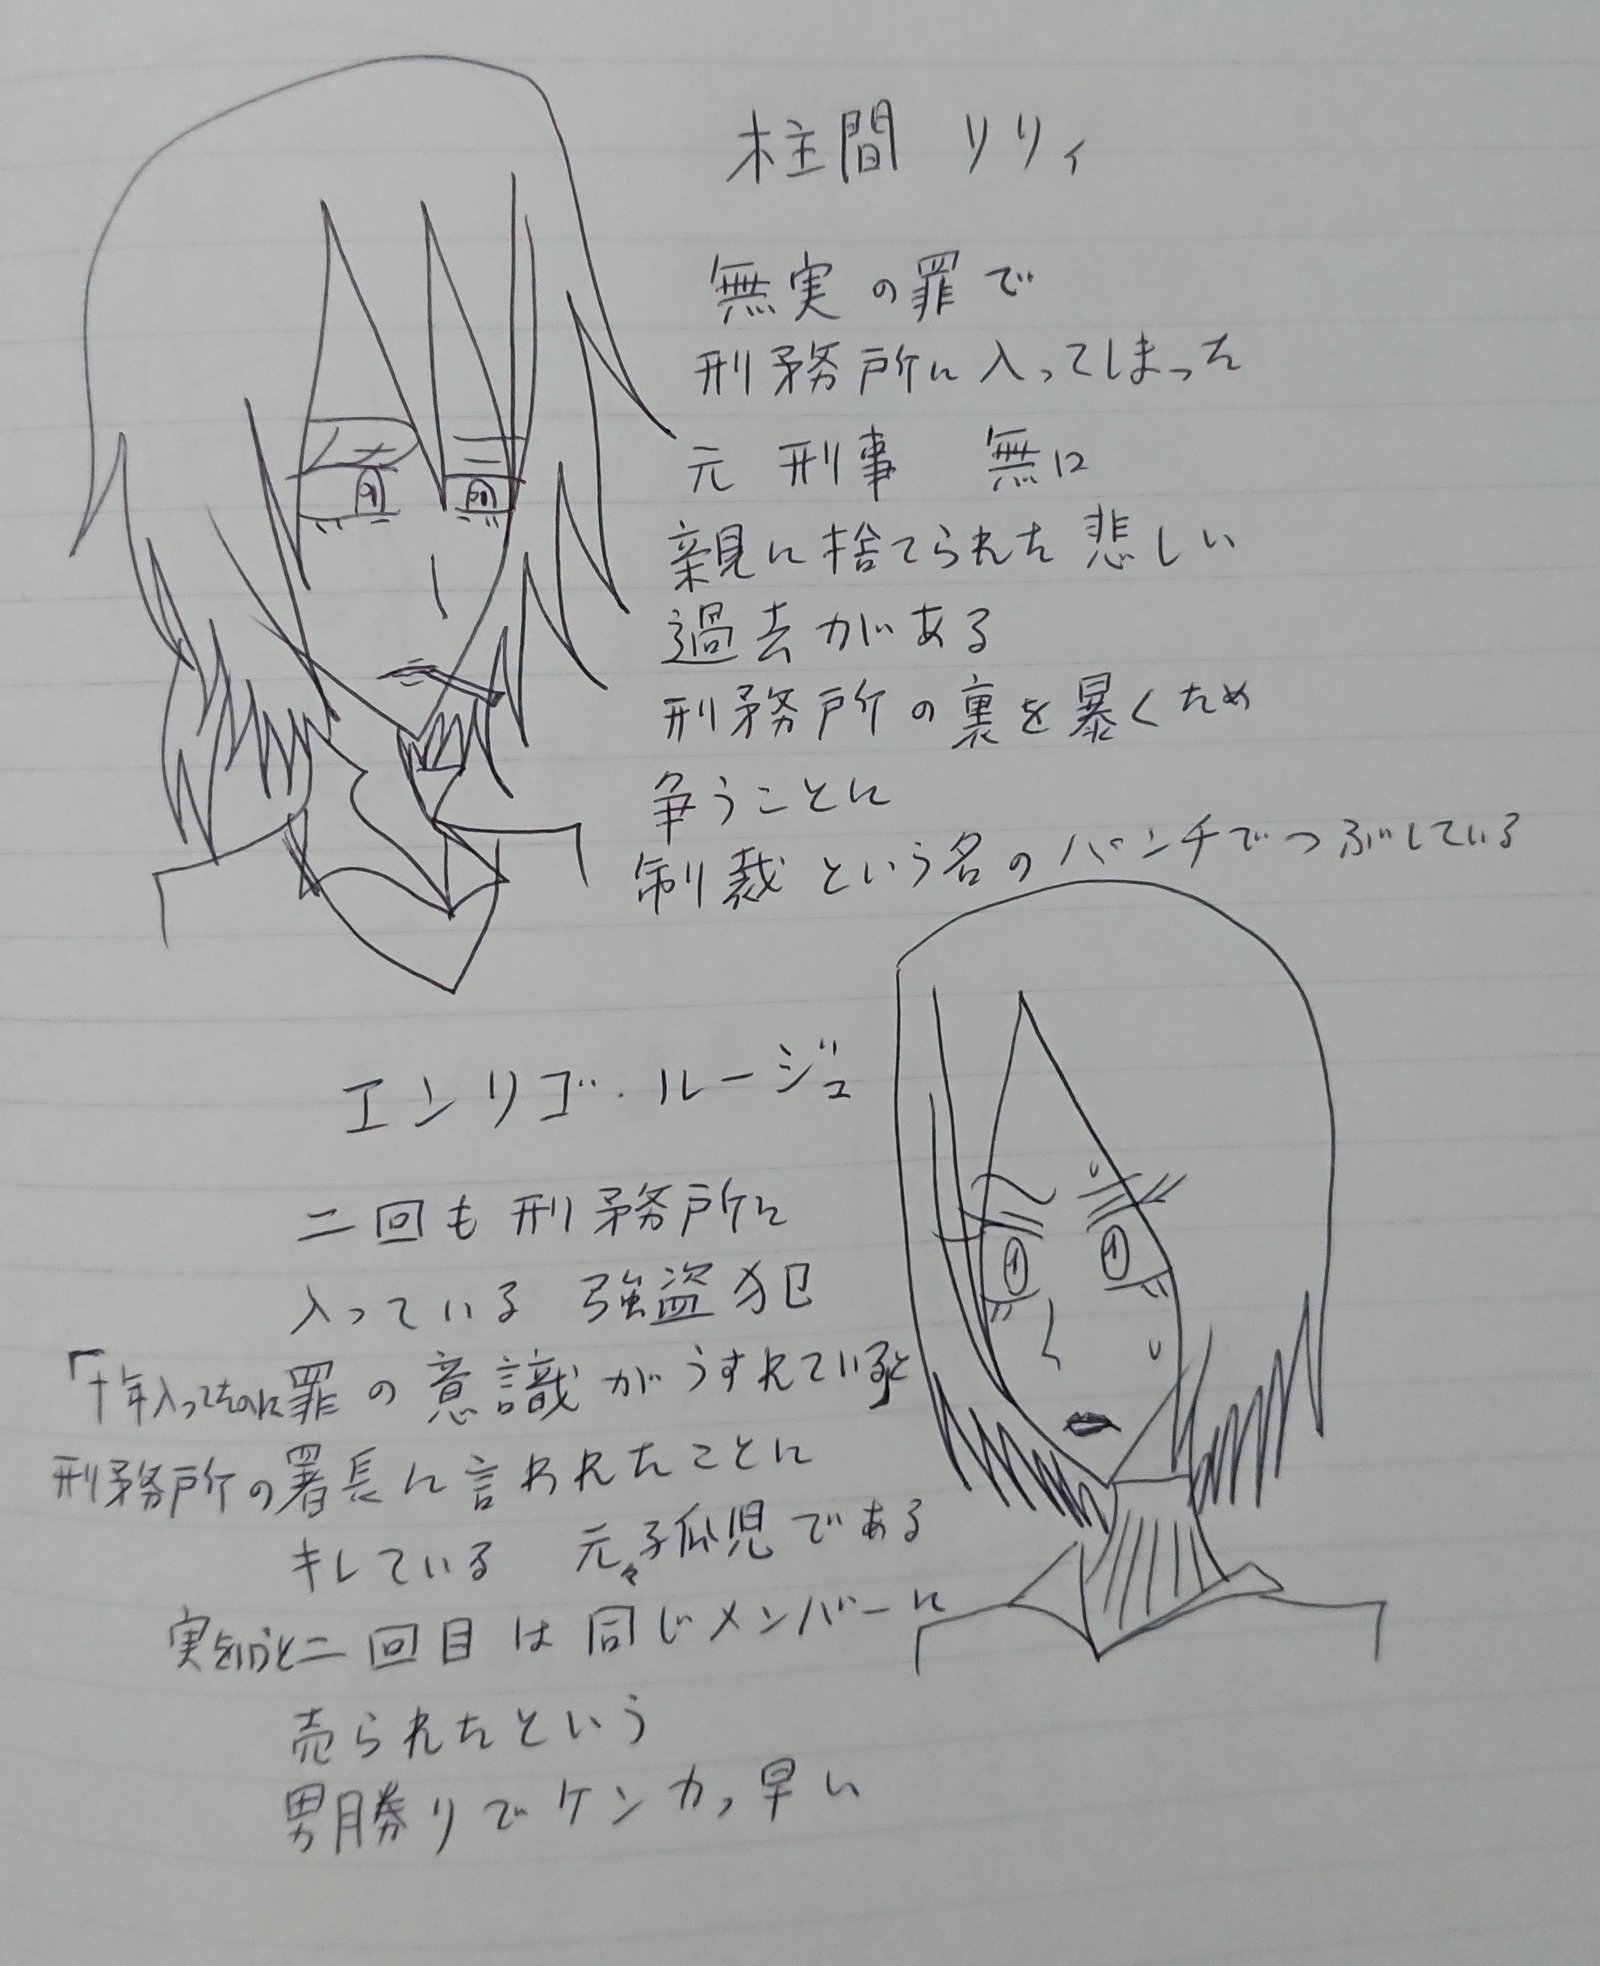 柱間 リリィ
無実の罪で
刑務所に入ってしまった
元刑事 無口
親に捨てられた悲しい
過去がある
刑務所の裏を暴くため
争うことに
制裁という名のパンチでつぶしている
エンリゴ・ルージュ
二回も刑務所に
入っている 強盗犯
「十年入ってたのに罪の意識がうすれていると
刑務所の署長に言われたことに
キレている 元々孤児である
実を言うと二回目は同じメンバーに
売られたという
男勝りでケンカっ早い